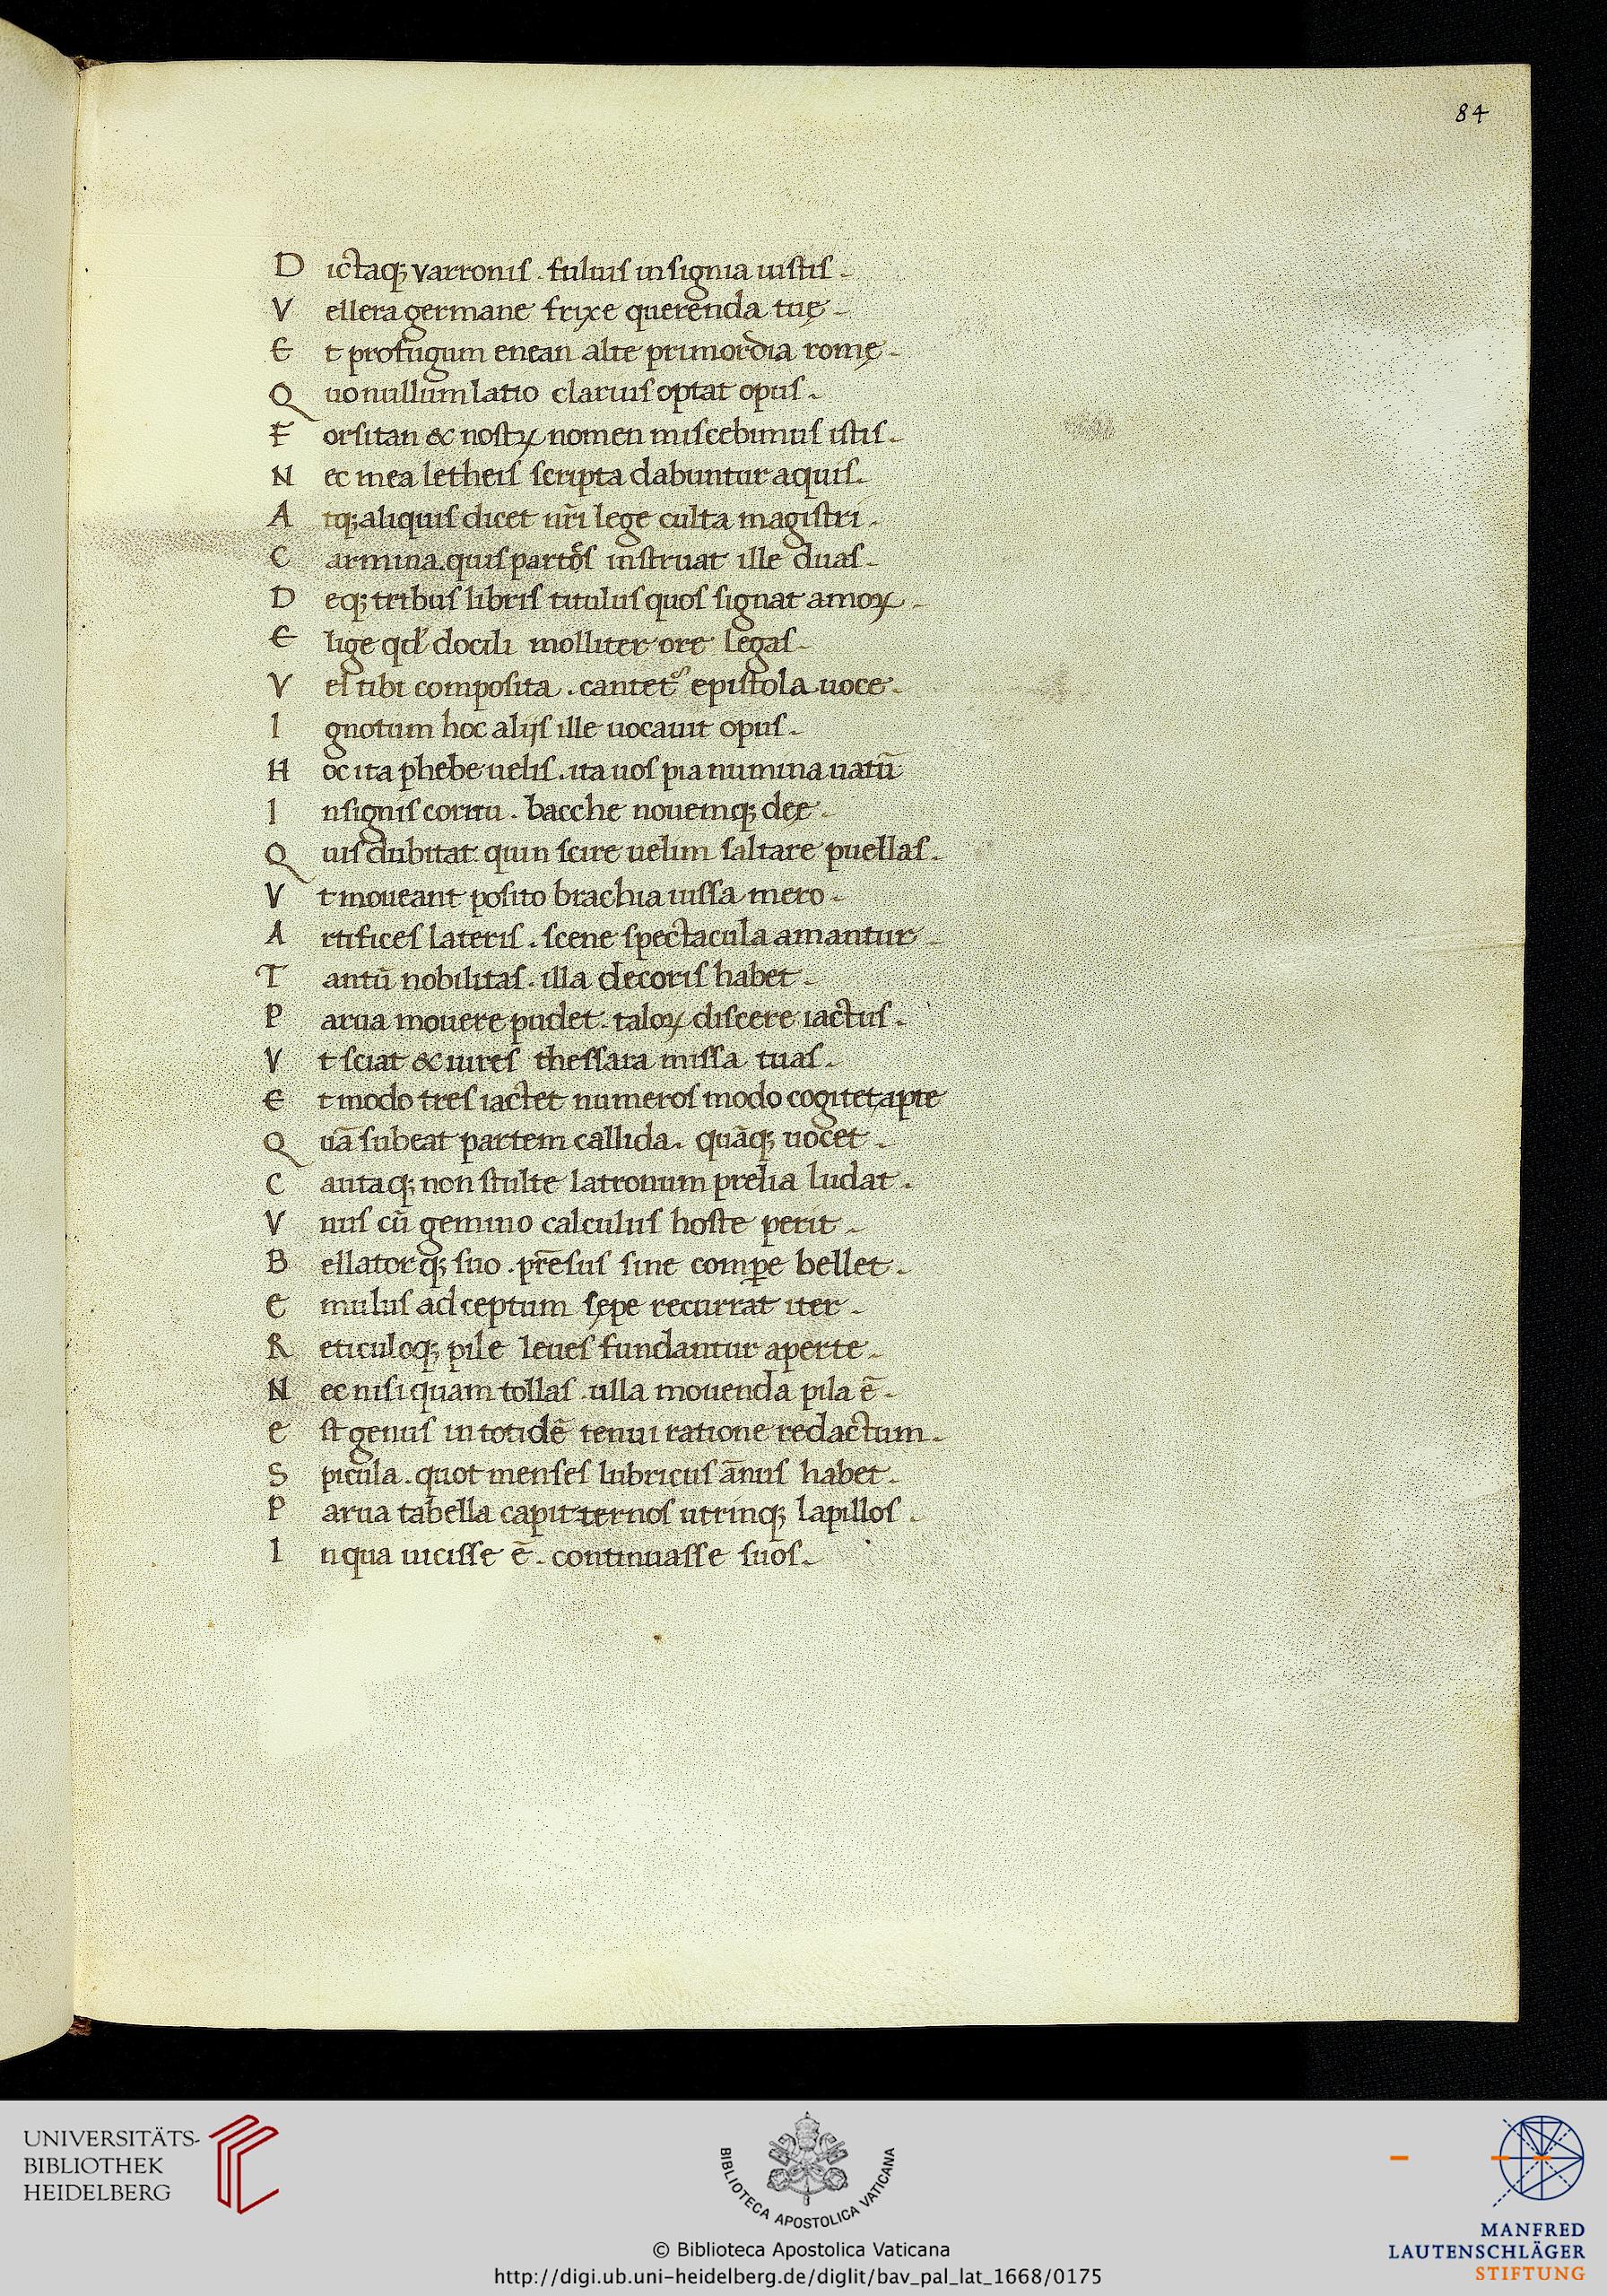 84
D ictaq; varronis . fuluis insignia uistis .
V ellera germane frixe querenda tuę .
E t profugum enean alte primordia romę .
Q uo nullum latio clarius optat opus .
F orsitan & nostrꝝ nomen miscebimus istis .
N ec mea letheis scripta dabuntur aquis .
A tq; aliquis dicet ur̃i lege culta magistri .
C armina . quis partes instruat ille duas .
D eq; tribus libris titulus quos signat amoꝝ .
E lige qd' docili molliter ore legas .
V el tibi composita . cantet᷒ epistola uoce .
I gnotum hoc alijs ille uocauit opus .
H oc ita phebe uelis . ita uos pia numina uatū
I nsignis cornu . bacche nouemq; deę .
Q uis dubitat quin scire uelim saltare puellas .
V t moueant posito brachia iussa mero .
A rtifices lateris . scene spectacula amantur .
T antū nobilitas . illa decoris habet .
P arua mouere pudet . taloꝝ discere iactus .
V t sciat & uires thessara missa tuas .
E t modo tres iactet numeros modo cogitet apte
Q uā subeat partem callida . quāq; uocet .
C autaq; non stulte latronum prelia ludat .
V nus cū gemino calculus hoste perit .
B ellatorq; suo . prēsus sine comꝑe bellet .
E mulus ad ceptum sępe recurrat iter .
R eticuloq; pile leues fundantur aperte .
N ec nisi quam tollas . ulla mouenda pila ē .
e st genus in totidē tenui ratione redactum .
S picula . quot menses lubricus ānus habet .
P arua tabella capit ternos utrinq; lapillos .
I n qua uicisse ē . continuasse suos .
UNIVERSITÄTS-
BIBLIOTHEK
HEIDELBERG
BIBLIOTECA APOSTOLICA VATICANA
© Biblioteca Apostolica Vaticana
http://digi.ub.uni-heidelberg.de/diglit/bav_pal_lat_1668/0175
MANFRED
LAUTENSCHLÄGER
STIFTUNG